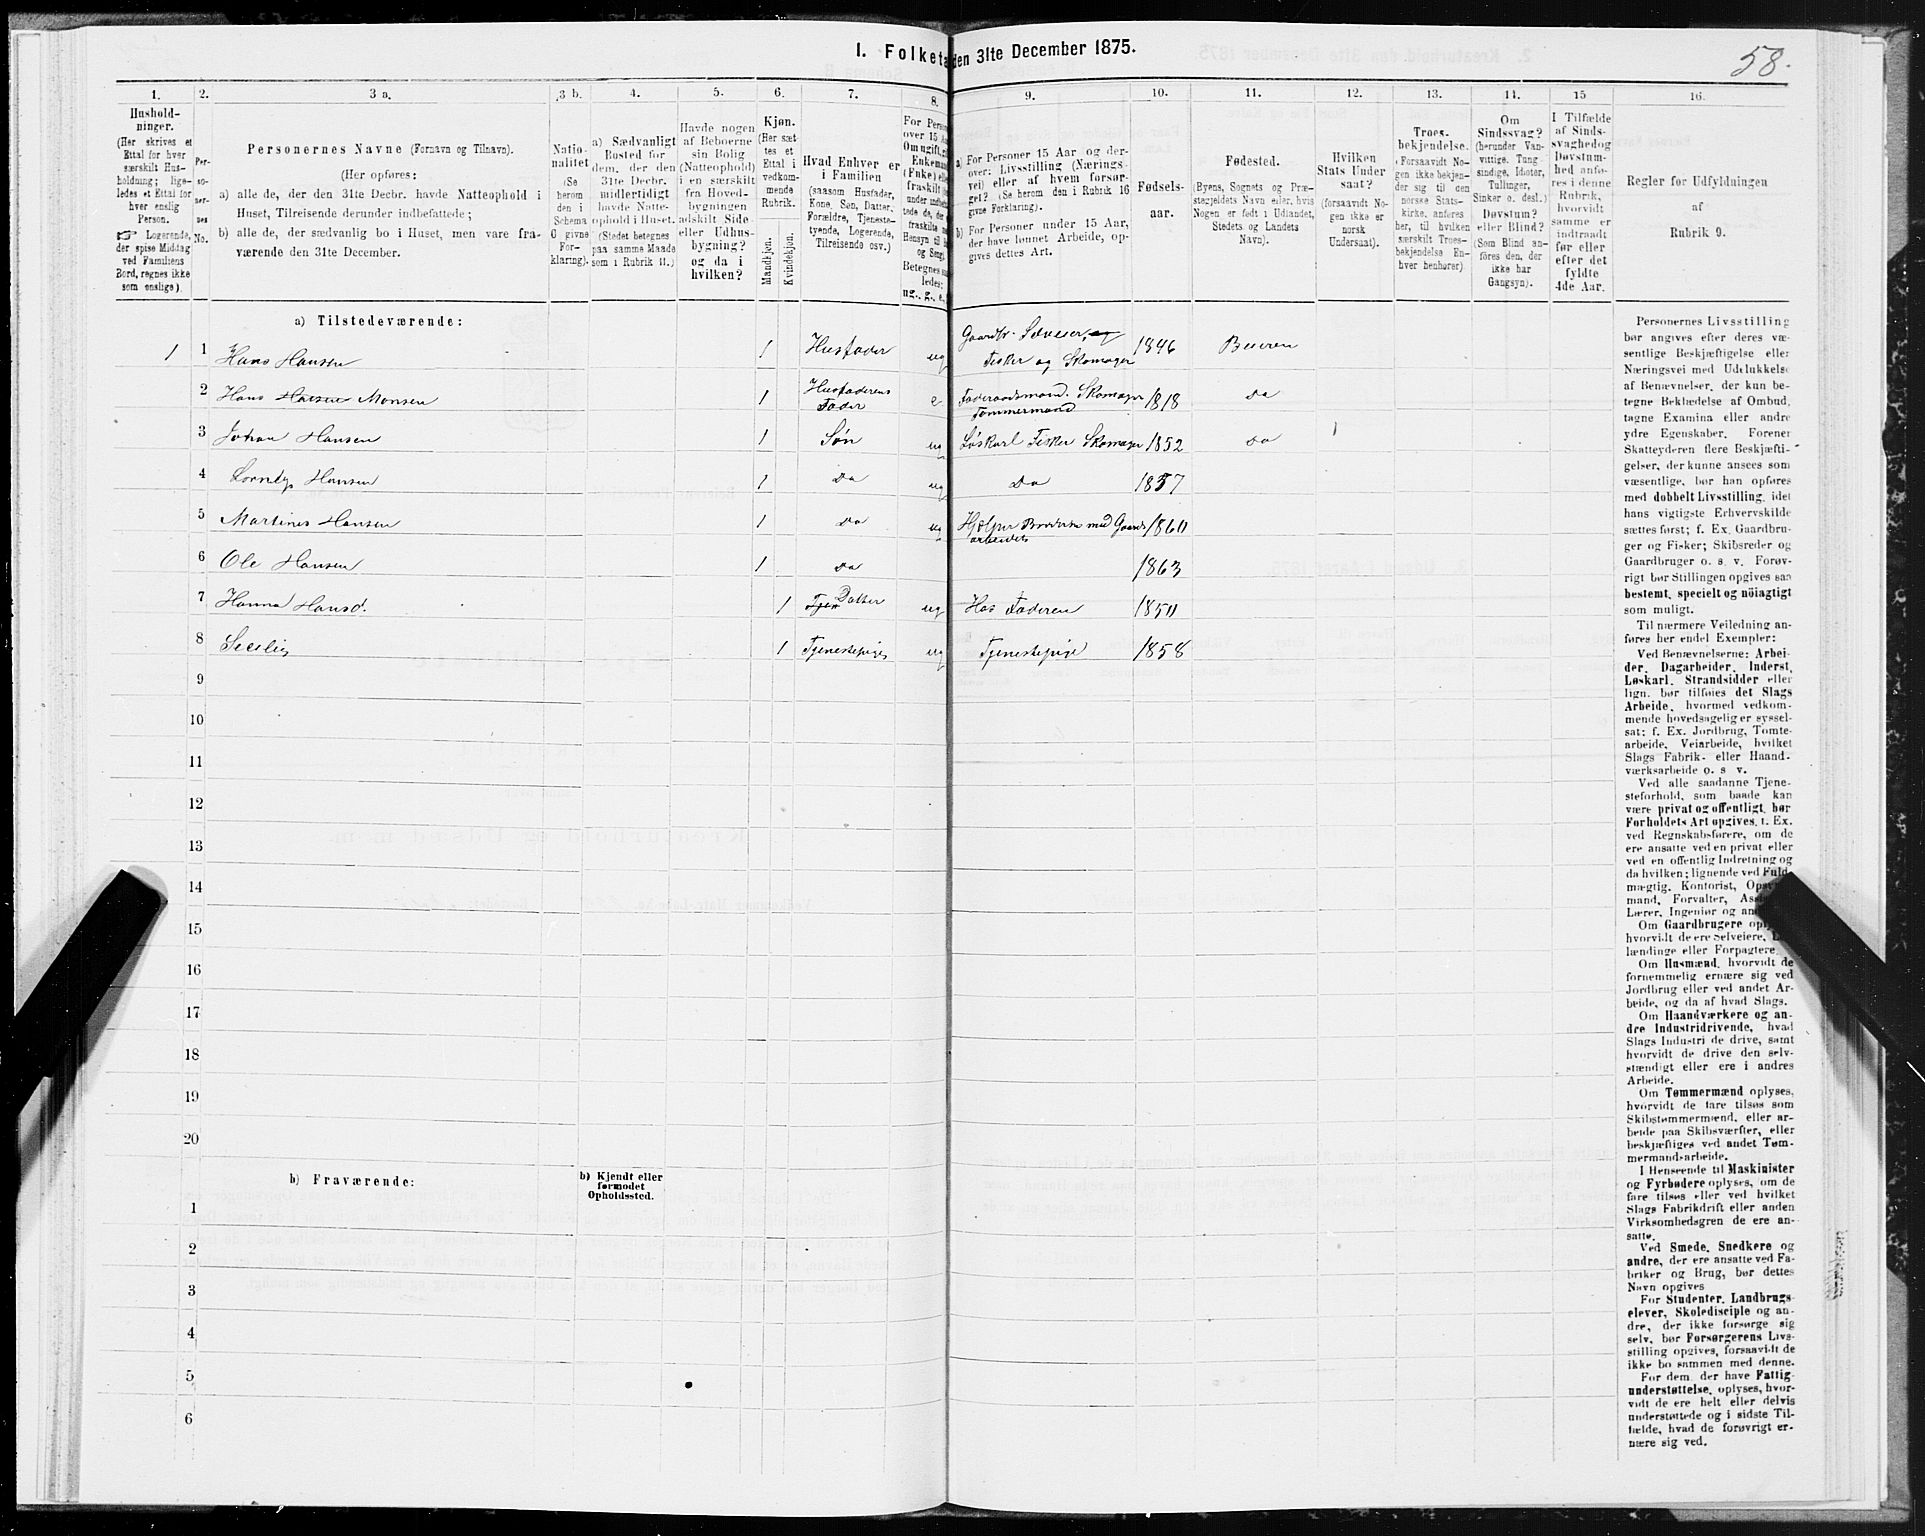 1. Folketæ den 31te December 1875.
58.
1. 2. 3 a. 3 b. 4. 5. 6. 7. 8. 9. 10. 11. 12. 13. 14. 15 16.
Hushold-
ninger.
(Her skrives et
Ettal for hver
særskilt Hus-
holdning; lige-
ledes et Ettal for
hver enslig
Person.
☞ Logerende,
der spise Middag
ved Familiens
Bord, regnes ikke
som enslige).
Per-
so-
ner-
nes
No.
Personernes Navne (Fornavn og Tilnavn).
(Her opføres:
a) alle de, der den 31te Decbr. havde Natteophold i
Huset, Tilreisende derunder indbefattede;
b) alle de, der sædvanlig bo i Huset, men vare fra-
værende den 31te December.
Natio-
nalitet
(Se
herom
den i
Schema
6 givne
For-
klaring).
a) Sædvanligt
Bosted for
dem, der den
31te Decbr.
midlertidigt
havde Natte-
ophold i Huset.
(Stedet betegnes
paa samme Maade
som i Rubrik 11.)
Havde nogen
af Beboerne
sin Bolig
(Natteophold)
i en særskilt
fra Hoved-
bygningen
adskilt Side-
eller Udhus-
bygning?
og da i
hvilken?
Kjøn.
(Her sæt
tes et
Ettal i
vedkom-
mende
Rubrik.
Mandkjøn.
Kvindekjøn.
Hvad Enhver er
i Familien
(saasom Husfader,
Kone, Søn, Datter,
Forældre, Tjeneste-
tyende, Logerende,
Tilreisende osv.)
For Person
over 15 Aa
Om ugift, gi
Enkeman
(Fuke) elle
fraskilt
under indbef
tede de, der e
fraskilte m
Hensyn til B
og Seng)
Betegnes sa
ledes:
ug., g., e.,
a) For Personer 15 Aar og der-
over: Livsstilling (Nærings-
vei) eller af hvem forsør-
get? (Se herom den i Rubrik 16
givne Forklaring).
b) For Personer under 15 Aar,
der have lønnet Arbeide, op-
gives dettes Art.
Fødsels-
aar.
Fødested.
(Byens, Sognets og Præ-
stegjeldets Navn eller, hvis
Nogen er født i Udlandet,
Stedets og Landets
Navn).
Hvilken
Stats Under
saat?
(forsaavidt No-
gen ikke er
norsk
Undersaat).
Troes-
bekjendelse.
(Forsaavidt No-
gen ikke bekjen-
der sig til den
norske Stats-
kirke, anføres
her, til hvilken
særskilt Troes-
bekjendelse En-
hver henhører).
Om
Sindssvag?
(herunder Van-
vittige, Tung-
sindige, Idioter,
Tullinger,
Sinker o. desl.)
Døvstum?
eller Blind?
(Som Blind an-
føres den, der
ikke har
Gangsyn).
I Tilfælde
af Sinds-
svaghedog
Døvstum-
hed anfø-
res i denne
Rubrik,
hvorvidt
samme er
indtraadt
før eller
efter det
fyldte
4de Aar.
Regler før Udfyldningen
af
Rubrik 9.
a) Tilstedeværende:
1 1 Hans Hansen 1 Husfader ug Gaardbr. Selveier, og
Fisker og Skomager 1846 Beieren
2 Hans Hansen Monsen 1 Husfaderens
Fader e Føderaadsmand. Skomager
Tømmermand 1818 Do
3 Johan Hansen 1 Søn ug Løskarl Fisker Skomager 1852 Do
4 Hansen 1 Do ug Do 1857
5 Martines Hansen 1 Do ug Hjelper Broderen med Gaards
arbeidet 1860
6 Ole Hansen 1 Do 1863
7 Hanna Hansd. 1 Tjen Datter ug Hos Faderen 1850
8 1 Tjenestepige ug Tjenestepige 1858
9
10
11
12
13
14
15
16
17
18
19
20
b) Fraværende:
b) Kjendt eller
formodet
Opholdssted.
1
2
3
4
5
6
Personernes Livsstilling
bør angives efter deres væ-
sentlige Beskjæftigelse eller
Næringsvei med Udelukkelse
af Benævnelser, der kun be-
tegne Beklædelse af Ombud,
tagne Examina eller andre
ydre Egenskaber. Forener
Skatteyderen flere Beskjæfti-
gelser, der kunne ansees som
væsentlige, bør han opføres
med dobbelt Livsstilling, idet
hans vigtigste Erhvervskilde
sættes først; f. Ex. Gaardbru-
ger og Fisker; Skibsreder og
Gaardbruger o. s. v. Forøv-
rigt bør Stillingen opgives saa
bestemt, specielt og nöiagtigt
som muligt.
Til nærmere Veiledning an-
føres her endel Exempler:
Ved Benævnelserne: Arbei-
der, Dagarbeider, Inderst,
Løskarl, Strandsidder eller
lign. bør tilføies det Slags
Arbeide, hvormed vedkom-
mende hovedsagelig er syssel-
sat; f. Ex. Jordbrug, Tomte-
arbeide, Veiarbeide, hvilket
Slags Fabrik- eller Haand-
værksarbeide o. s v.
Ved alle saadanne Tjene-
steforhold, som baade kan
være privat og offentligt, bør
Forholdets Art opgives, t. Ex.
ved Regnskabsførere, om de
ere ansatte ved en privat eller
ved en offentlig Indretning og
da hvilken; lignende ved Fuld-
mægtig, Kontorist, Opsyns-
mand, Forvalter, Ass
Lærer, Ingeniør og an
Om Gaardbrugere oply
hvorvidt de ere Selveiere,
lændinge eller Forpagtere.
Om Husmænd, hvorvidt de
fornemmelig ernære sig ved
Jordbrug eller ved andet Ar-
beide, og da af hvad Slags.
Om Haandværkere og an-
dre Industridrivende, hvad
Slags Industri de drive, samt
hvorvidt de drive den selv-
stændigt eller ere i andres
Arbeide.
Om Tømmermænd oplyses,
hvorvidt de fare tilsøs som
Skibstømmermænd, eller ar-
beide paa Skibsværfter, eller
beskjæftiges ved andet Tøm-
mermandsarbeide.
I Henseende til Maskinister
og Fyrbødere oplyses, om de
fare tilsøs eller ved hvilket
Slags Fabrikdrift eller anden
Virksomhedsgren de ere an-
satte.
Ved Smede, Snedkere og
andre, der ere ansatte ved Fa-
briker og Brug, bør dettes
Navn opgives
For Studenter, Landbrugs-
elever, Skoledisciple og an-
dre, der ikke forsørge sig
selv, bør Forsørgerens Livs-
stilling opgives, forsaavidt de
ikke bo sammen med denne.
For dem, der have Fattig-
understøttelse, oplyses, hvor-
vidt de ere helt eller delvis
understøttede og i sidste Til-
fælde, hvad de forøvrigt er-
nære sig ved.